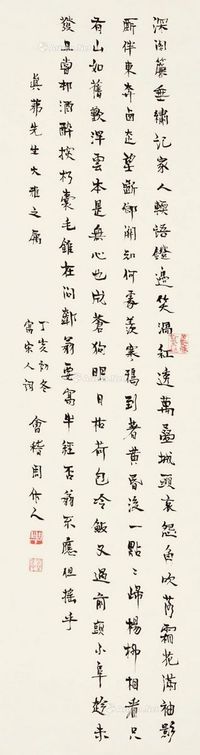 深閣簾垂繡記家人輭語鐙邊笑渦紅透萬疊城頭哀怨角吹落霜花滿袖影
廝伴東奔西走望斷鄉關知何處羨寒鴉到著黃昏後一點〻歸楊柳相看只
有山如舊歎浮雲本是無心也成蒼狗眀日枯荷包冷飯又過前頭小阜趁未
發且嘗邨酒醉探朽囊毛錐在問鄰翁要寫牛經否翁不應但搖手
真茀先生大雅之屬
丁亥初冬
寫宋人詞 會稽周作人